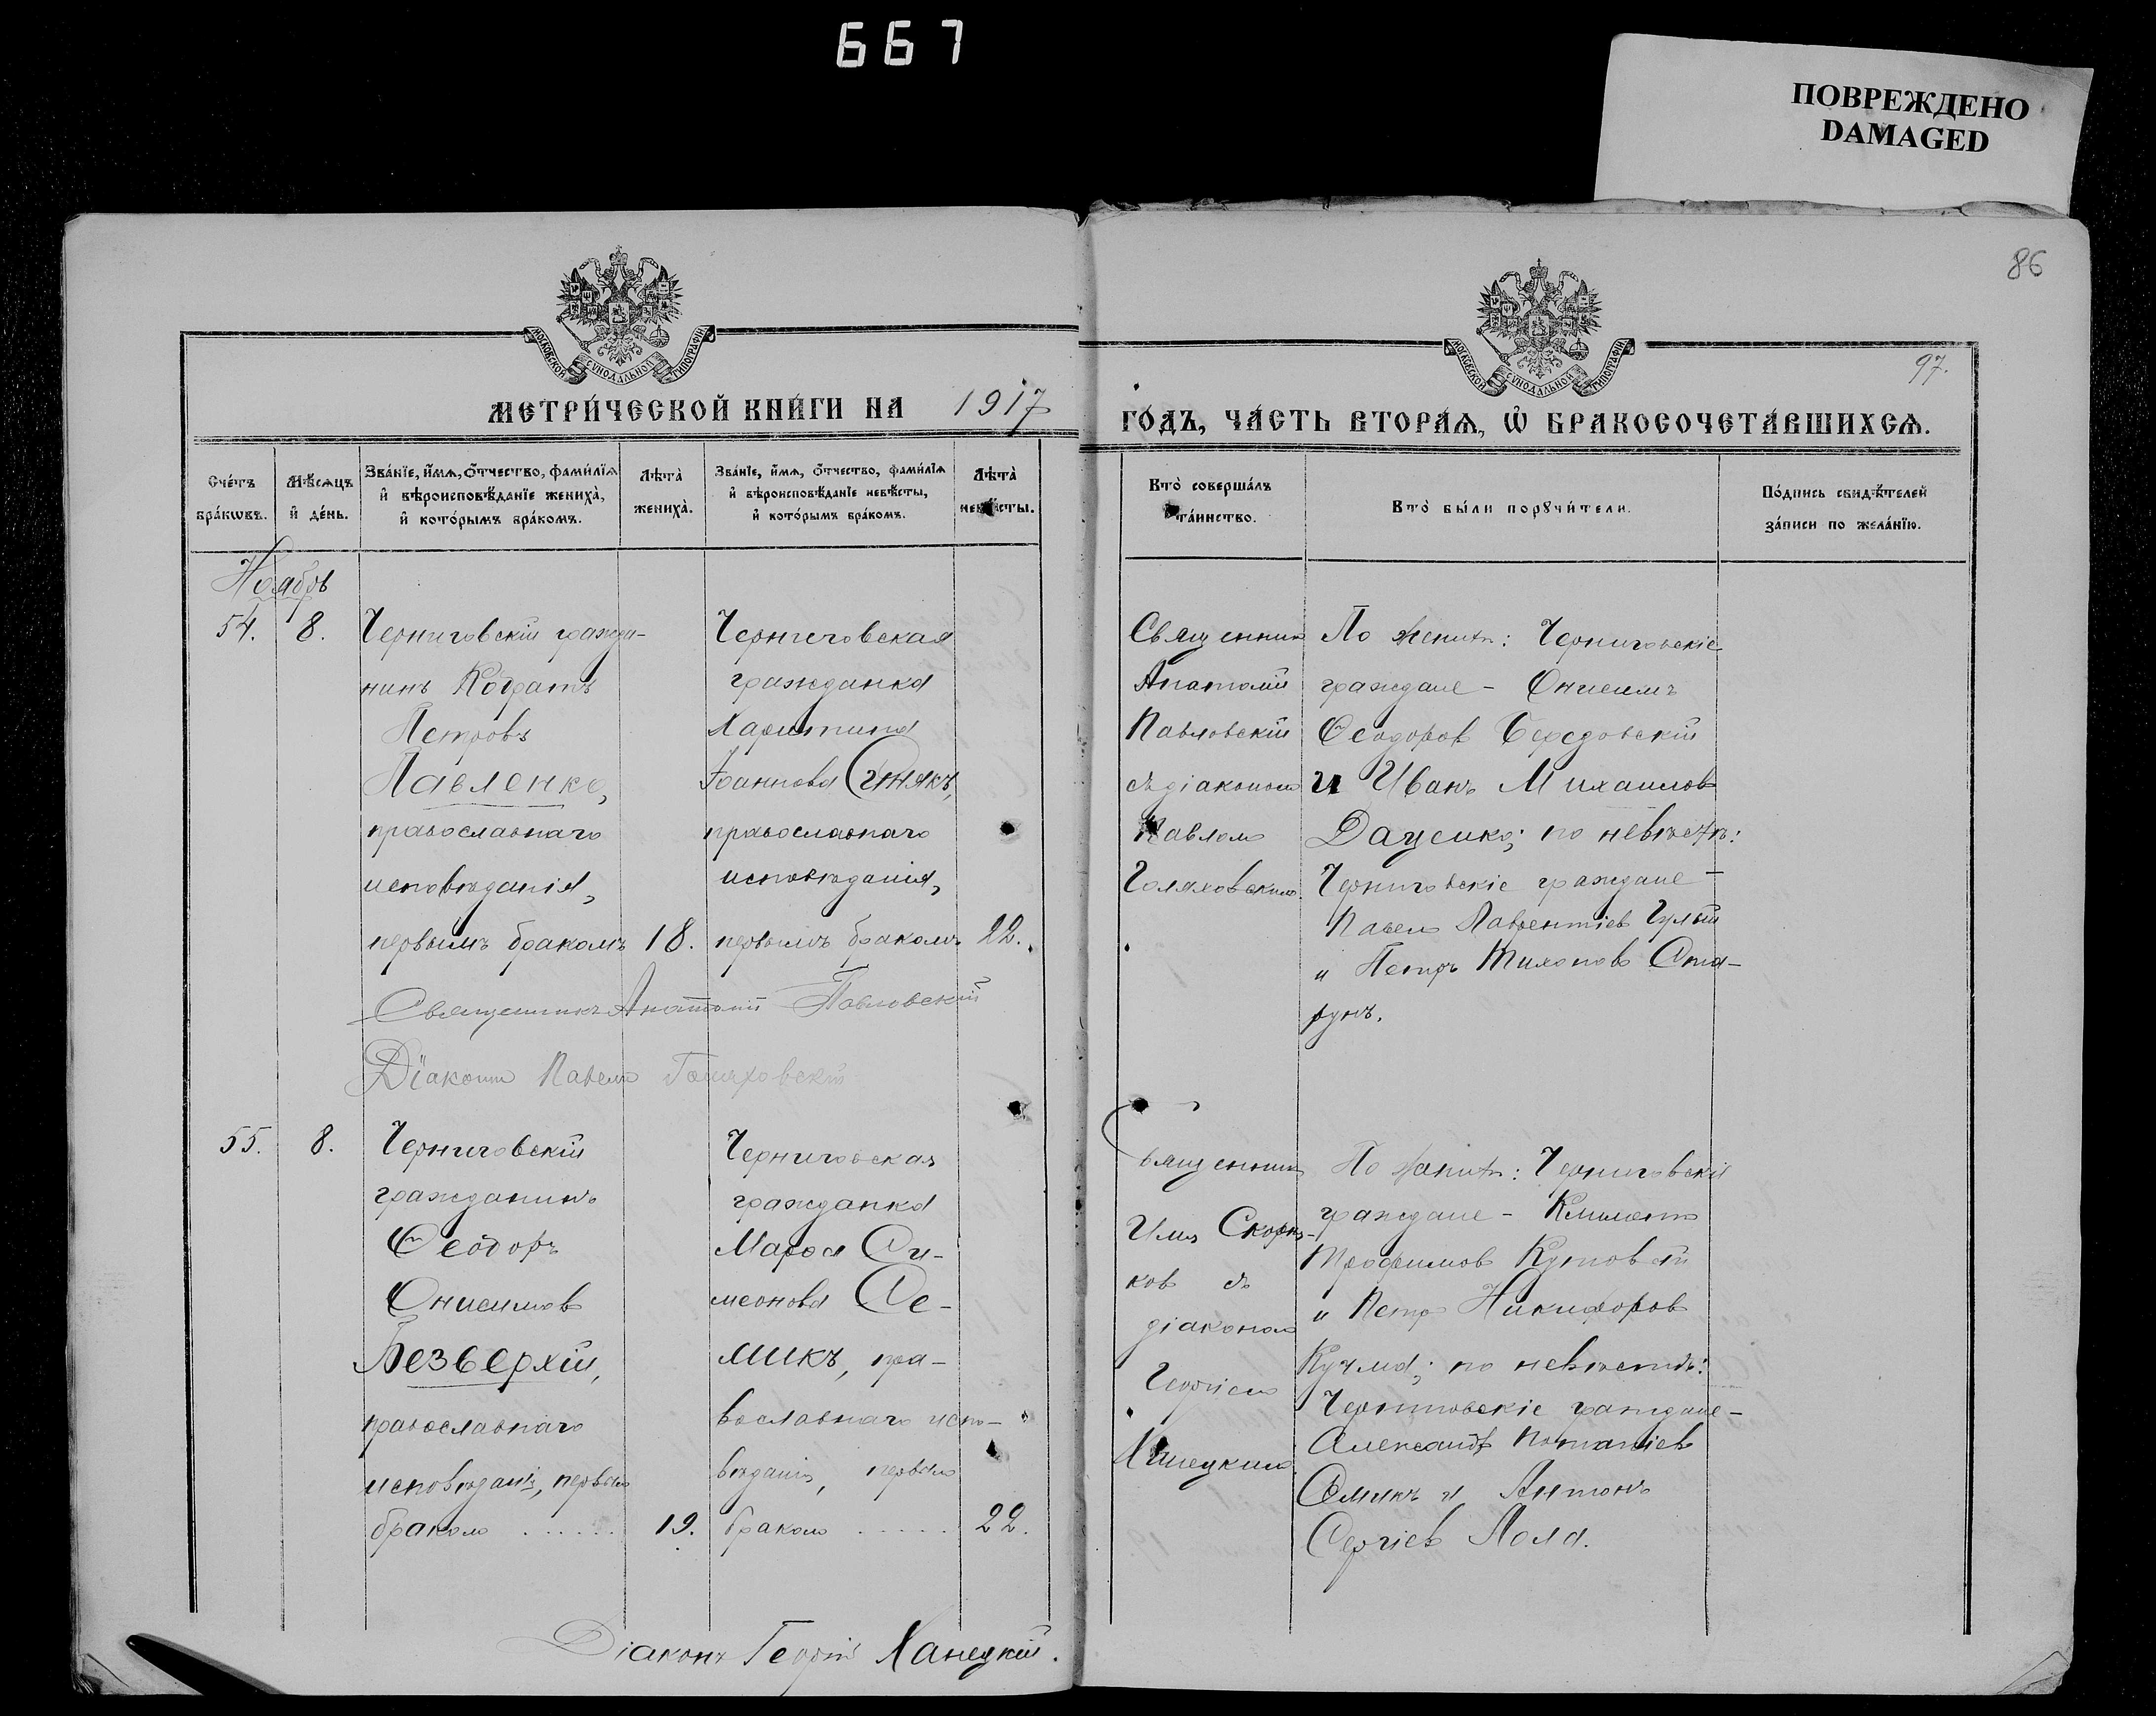 667
ПОВРЕЖДЕНО
DAMAGED
86
97.
МОСКОВСКОЙ СУНОДАЛЬНОЙ ТИПОГРАФІИ
МОСКОВСКОЙ СУНОДАЛЬНОЙ ТИПОГРАФІИ
МЕТРИ́ЧЕСКОЙ КНИ́ГИ НА 1917
ГО́ДЪ, ЧА́СТЬ ВТОРА́Ѧ, Ѡ҆ БРАКОСОЧЕТА́ВШИХСѦ.
Сче́тъ
бра́кѡвъ.
Мѣ́сѧцъ
и҆ де́нь.
Зва́нїе, и҆́мѧ, ѻ҆́тчество, фами́лїѧ
и҆ вѣроисповѣ́данїе жениха̀,
и҆ кото́рымъ бра́комъ.
Лѣта̀
жениха̀.
Зва́нїе, и҆́мѧ, ѻ҆́тчество, фами́лїѧ
и҆ вѣроисповѣ́данїе невѣ́сты,
и҆ кото́рымъ бра́комъ.
Лѣта̀
невѣ́сты.
Кто̀ соверша́лъ
та́инство.
Кто̀ бы́ли порꙋчи́тели.
По́дпись свидѣ́телей
за́писи по жела́нїю.
Ноябрь
54.
8.
Черниговскій гражда-
нинъ Кодратъ
Петровъ
Павленко,
православнаго
исповѣданія,
первымъ бракомъ
18.
Черниговская
гражданка
Харитина
Іоаннова
православнаго
исповѣданія,
первымъ бракомъ
22.
Священник
Анатолій
Павловскій
съ діаконом
Павлом
Голяховским
По женихѣ: Черниговскіе
граждане - Онисимъ
Ѳеодоров Бередовскій
и Иванъ Михаилов
Даценко; по невѣстѣ:
Черниговскіе граждане -
Павел Лаврентіев Гулый
и Петръ Тихонов Ста-
рунъ.
Священникъ Анатолій Павловскій
Діакон Павел Голяховскій
55.
8.
Черниговскій
гражданинъ
Ѳеодоръ
Онисимов
Безверхій,
православнаго
исповѣданія, первым
браком ......
19.
Черниговская
гражданка
Марѳа Си-
меонова Се-
микъ, пра-
вославнаго испо-
вѣданія, первым
браком .....
22.
Священник
Илія
ков съ
діаконом
Георгіем
Ханецким.
По женихѣ: Черниговскіе
граждане - Климент
Трофимов Кутовый
и Петр Никифоров
Кучма; по невѣстѣ:
Черниговскіе граждане -
Александр
Семикъ и Антонъ
Сергіев Лола.
Діаконъ Георгій Ханецкій.